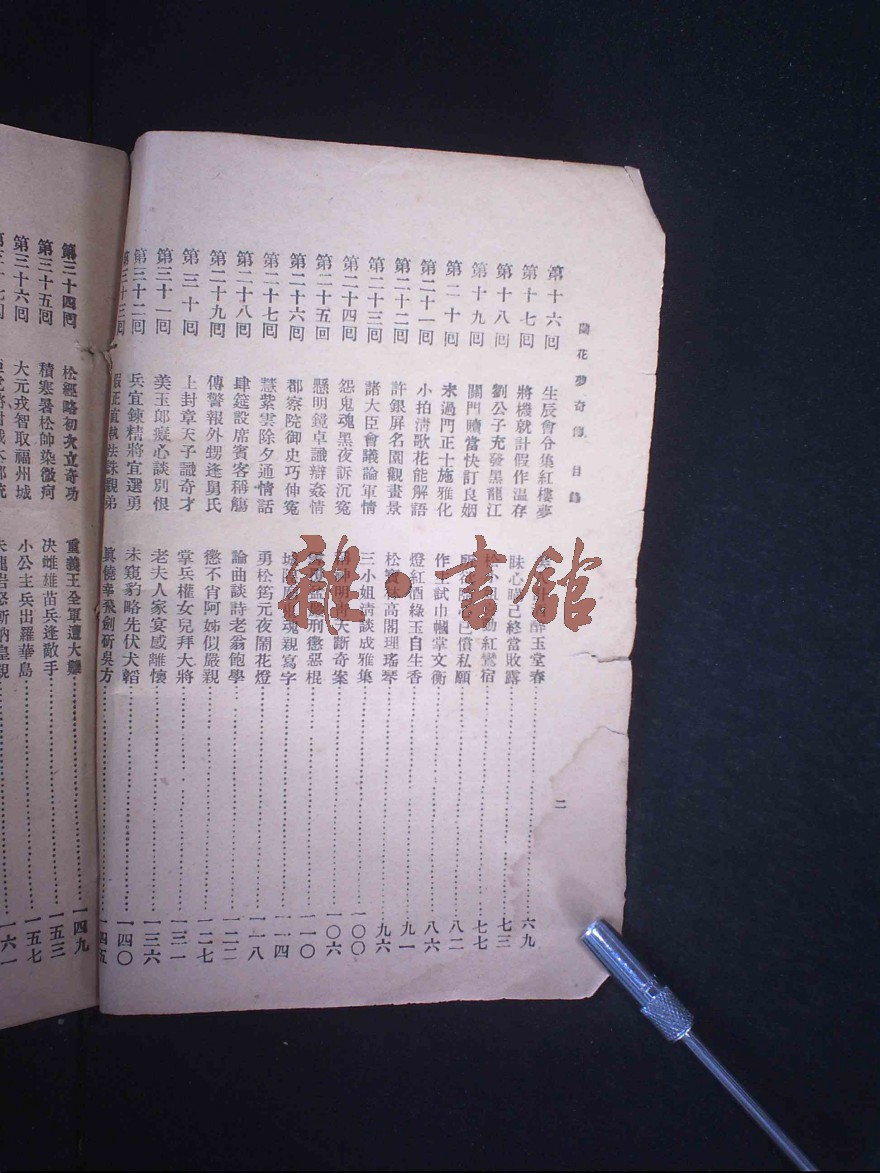 蘭花夢奇傳 目錄
二
第十六回 生辰會分集紅樓夢 醉玉堂春 六九
第十七回 將機就計假作溫存 昧心瞞己終當敗露 七三
第十八回 劉公子充發黑龍江 松小姐 動紅鸞宿 七七
第十九回 關門贖當快訂良姻 已償私願 八二
第二十回 未過門正士施雅化 作 試巾幗掌文衡 八六
第二一回 小拍清歌花能解語 燈紅酒綠玉自生香 九一
第二二回 許銀屏名園觀畫景 松寶林高閣理瑤琴 九六
第二三回 諸大臣會議論軍情 三小姐清談成雅集 一〇〇
第二十四回 怨鬼魂黑夜訴沉冤 天斷奇案 一〇六
第二十五回 懸明鏡卓識辯姦情 刑懲惡棍 一一〇
第二十六回 都察院御史巧伸冤 城隍廟鬼魂親寫字 一一四
第二十七回 慧紫雲除夕通情話 勇松筠元夜鬧花燈 一一八
第二十八回 肆筵設席賓客稱觴 論曲談詩老翁飽學 一二二
第二十九回 傳警報外甥逢舅氏 懲不肖阿姊似嚴親 一二七
第三十回 上封章天子識奇才 掌兵權女兒拜大將 一三一
第三十一回 美玉郎癡心談別恨 老夫人家宴感離懷 一三六
第三十二回 兵宜鍊精將宜選勇 未窺豹略先伏犬韜 一四〇
第三十三回 假正直執法誅親弟 眞僥幸飛劍斫吳方 一四五
第三十四回 松經略初次立奇功 重義王全軍遭大難 一四九
第三十五回 積寒暑松帥染微疴 決雌雄苗兵逢敵手 一五三
第三十六回 大元戎智取福州城 小公主兵出羅華島 一五七
一六一
雜·書館